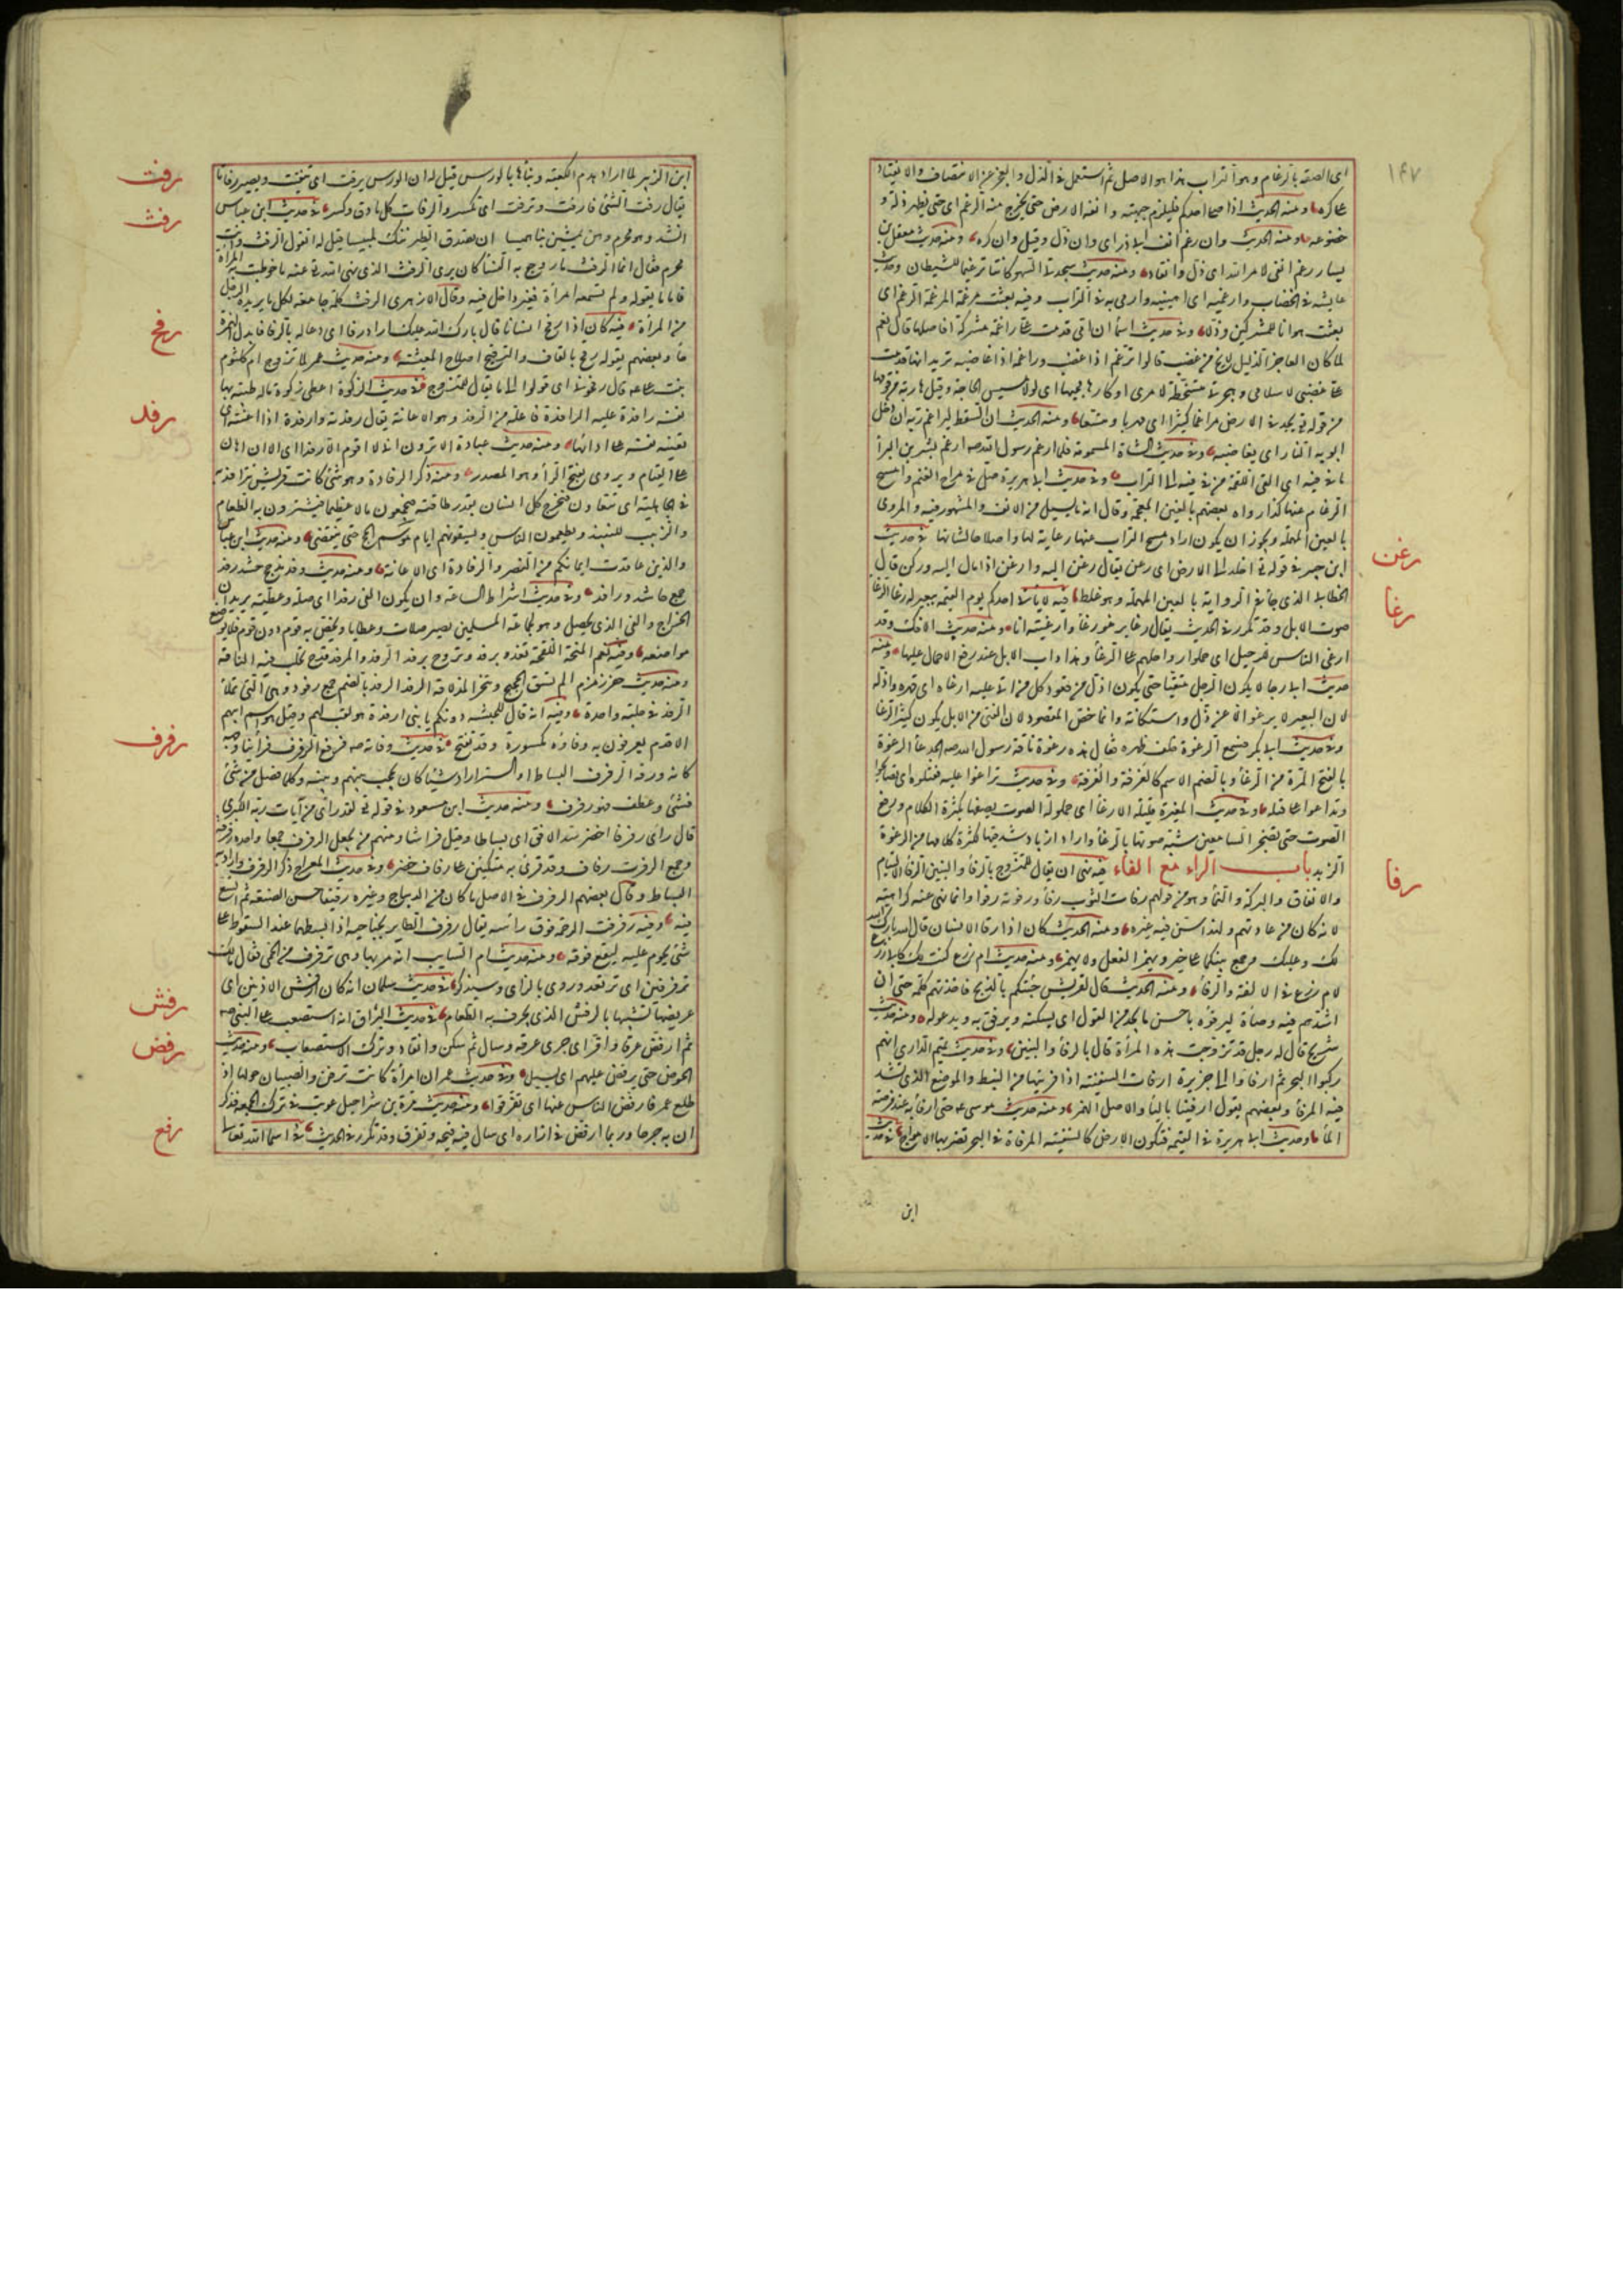 ١٤٧
اى الصقه بالرغام وهو التراب هذا هو الاصل ثم استعمل فى الذل والعجز عن الانتصاف والانقياد
على كره ومنه الحديث اذا صلى احدكم فليلزم جبهته وانفه الارض حتى يخرج منه الرغم اى حتى يظهر ذله و
خضوعه ومنه الحديث وان رغم انف ابى ذر اى وان ذل وقيل وان كره ومنه حديث معقل بن
يسار رغم انفى لامر الله اى ذل وانقاد ومنه حديث سجدتى السهو كانتا ترغيما للشيطان وحديث
عايشة فى الخضاب وارغميه اى اهينيه وارمى به فى التراب وفيه بعثت مرغمة المرغمة الرغم اى
بعثت هوانا للمشركين وذلا وفى حديث اسما ان امى قدمت على راغمة مشركة افاصلها قال نعم
لما كان العاجز الذليل لا يخ من غضب قالوا ترغم اذا غضب وراغمه اذا غاضبه تريد انها قدمت
على غضبى لاسلامى وهجرتى متسخطة لامرى او كارهة مجيها اى لولا مسيس الحاجة وقيل هاربة من قومها
من قوله تع يجد فى الارض مراغما كثيرا اى مهربا ومتسعا ومنه الحديث ان السقط ليراغم ربه ان ادخل
ابويه النار اى يغاضبه وفى حديث الشاة المسمومة فلما ارغم رسول الله صه ارغم بشر بن البرأ
ما فى فيه اى القى اللقمة من فيه الى التراب وفى حديث ابى هريرة صل فى مراح الغنم وامسح
الرغام عنها كذا رواه بعضهم بالغين المعجمة وقال انه ما يسيل من الانف والمشهور فيه والمروى
بالعين المهملة ويجوز ان يكون اراد مسح التراب عنها رعاية لها واصلاحا لشانها فى حديث
رغن
ابن جبير فى قوله تع اخلد الى الارض اى رغن يقال رغن اليه وارغن اذا مال اليه وركن قال
الخطابى الذى جأ فى الرواية بالعين المهملة وهو غلط فيه لا ياتى احدكم يوم القيمة ببعير له رغأ الرغا
رغا
صوت الابل وقد تكرر فى الحديث يقال رغا يرغو رغأ وارغيته انا ومنه حديث الافك وقد
ارغى الناس للرحيل اى حملوا رواحلهم على الرغأ وهذا داب الابل عند رفع الاحمال عليها ومنه
حديث ابى رجا لا يكون الرجل متقيا حتى يكون اذل من قعود كل من اتى عليه ارغاه اى قهره واذله
لان البعير لا يرغو الا عن ذل واستكانة وانما خص القعود لان الفتى من الابل يكون كثير الرغا
وفى حديث ابى بكر فسمع الرغوة خلف ظهره فقال هذه رغوة ناقة رسول الله صه الجدعأ الرغوة
بالفتح المرة من الرغأ وبالضم الاسم كالغرفة والغرفة وفى حديث تراغوا عليه فقتلوه اى تصايحوا
وتداعوا على قتله وفى حديث المغيرة مليلة الارغأ اى مملولة الصوت يصفها بكثرة الكلام ورفع
الصوت حتى تضجر السامعين شبه صوتها بالرغأ او اراد ازباد شدقها لكثرة كلامها من الرغوة
رفا
الزبد باب الراء مع الفاء فيه نهى ان يقال للمتزوج بالرفأ والبنين الرفأ الالتيام
والاتفاق والبركة والنمأ وهو من قولهم رفات الثوب رفأ ورفوته رفوا وانما نهى عنه كراهية
لانه كان من عادتهم ولهذا سن فيه غيره ومنه الحديث كان اذا رفأ الانسان قال بارك الله
لك وعليك وجمع بينكما على خير ويهمز الفعل ولا يهمز ومنه حديث ام زرع كنت لك كابى زرع
لام زرع فى الالفة والرفأ ومنه الحديث قال لقريش جئتكم بالذبح فاخذتهم كلمته حتى ان
اشدهم فيه وصأة ليرفؤه باحسن ما يجد من القول اى يسكنه ويرفق به ويدعو له ومنه حديث
شريح قال له رجل قد تزوجت هذه المرأة قال بالرفأ والبنين وفى حديث تميم الدارى انهم
ركبوا البحر ثم ارفأوا الى جزيرة ارفات السفينة اذا قربتها من الشط والموضع الذى تشد
فيه المرفأ وبعضهم يقول ارفينا باليأ والاصل الهمز ومنه حديث موسى عه حتى ارفأ به عند فرضة
المأ وحديث ابى هريرة فى القيمة فتكون الارض كالسفينة المرفأة فى البحر تضربها الامواج فى حديث
ابن
رفت
ابن الزبير لما اراد هدم الكعبة وبنأها بالورس قيل له ان الورس يرفت اى يتفتت ويصير رفاتا
يقال رفت الشئ فارفت وترفت اى تكسر والرفات كل ما دق وكسر فى حديث ابن عباس
رفث
انشد وهو محرم وهن يمشين بنا هميسا ان يصدق الطير ننك لميسا فقيل له اتقول الرفث وانت
محرم فقال انما الرفث ما روجع به النسأ كان يرى الرفث الذى نهى الله تع عنه ما خوطبت به المرأة
فاما ما يقوله ولم تسمعه امرأة فغير داخل فيه وقال الازهرى الرفث كلمة جامعة لكل ما يريده الرجل
رفح
من المرأة فيه كان اذا رفح انسانا قال بارك الله عليك اراد رفأ اى دعا له بالرفأ فابدل الهمزة
حأ وبعضهم يقوله رقح بالقاف والترقيح اصلاح المعيشة ومنه حديث عمر لما تزوج ام كلثوم
بنت على عه قال رفحونى اى قولوا لى ما يقال للمتزوج فى حديث الزكوة اعطى زكوة ماله طيبة بها
رفد
نفسه رافدة عليه الرافدة فاعلة من الرفد وهو الاعانة يقال رفدته وارفدة اذا اعنته اى
تعينه نفسه على ادائها ومنه حديث عبادة الا ترون انى لا اقوم الا رفدا اى الا ان اعان
على القيام ويروى بفتح الرأ وهو المصدر ومنه ذكر الرفادة وهو شئ كانت قريش تترافد به
فى الجاهلية اى تتعاون فيخرج كل انسان بقدر طاقته فيجمعون مالا عظيما فيشترون به الطعام
والزبيب للنبيذ ويطعمون الناس ويسقونهم ايام موسم الحج حتى ينقضى ومنه حديث ابن عباس
والذين عاقدت ايمانكم من النصر والرفادة اى الاعانة ومنه حديث وفد مذحج حشد رفد
جمع حاشد ورافد وفى حديث اشراط الساعة وان يكون الفى رفدا اى صلة وعطية يريد ان
الخراج والفى الذى يحصل وهو لجماعة المسلمين يصير صلات وعطايا ويخص به قوم دون قوم فلا يوضع
مواضعه وفيه نعم المنحة اللقحة تغدو برفد وتروح برفد الرفد والمرفد قدح تحلب فيه الناقة
ومنه حديث حفر زمزم الم نسق الحجيج وننحر المذلاقة الرفد الرفد بالضم جمع رفود وهى التى تملأ
الرفد فى حلبة واحدة وفيه انه قال للحبشة دونكم يا بنى ارفدة هو لقب لهم وقيل هو اسم ابيهم
رفرف
الاقدم يعرفون به وفاؤه مكسورة وقد تفتح فى حديث وفاته صه فرفع الرفرف فرأينا وجهه
كانه ورقة الرفرف البساط او الستر اراد شيئا كان يحجب بينهم وبينه وكلما فضل من شئ
فثنى وعطف فهو رفرف ومنه حديث ابن مسعود فى قوله تع لقد راى من آيات ربه الكبرى
قال راى رفرفا اخضر سد الافق اى بساطا وقيل فراشا ومنهم من يجعل الرفرف جمعا واحده رفرفة
وجمع الرفرف رفارف وقد قرئ به متكئين على رفارف خضر وفى حديث المعراج ذكر الرفرف واريد به
البساط وقال بعضهم الرفرف فى الاصل ما كان من الديباج وغيره رقيقا حسن الصنعة ثم اتسع
فيه وفيه رفرفت الرحمة فوق رأسه يقال رفرف الطاير بجناحيه اذا بسطهما عند السقوط على
شئ يحوم عليه ليقع فوقه ومنه حديث ام السايب انه مر بها وهى ترفرف من الحمى فقال مالك
رفش
ترفرفين اى ترتعد وروى بالزاى وسيذكر فى حديث سلمان انه كان ارفش الاذنين اى
عريضهما تشبيها بالرفش الذى يجرف به الطعام فى حديث البراق انه استصعب على النبى صه
رفض
ثم ارفض عرقا واقر اى جرى عرقه وسال ثم سكن وانقاد وترك الاستصعاب ومنه حديث
الحوض حتى يرفض عليهم اى يسيل وفى حديث عمر ان امرأة كانت تزفن والصبيان حولها اذ
طلع عمر فارفض الناس عنها اى تفرقوا ومنه حديث مرة بن شراحيل عوتب فى ترك الجمعة فذكر
رفع
ان به جرحا وربما ارفض فى ازاره اى سال فيه قيحه وتفرق وقد تكرر فى الحديث فى اسما الله تعالى